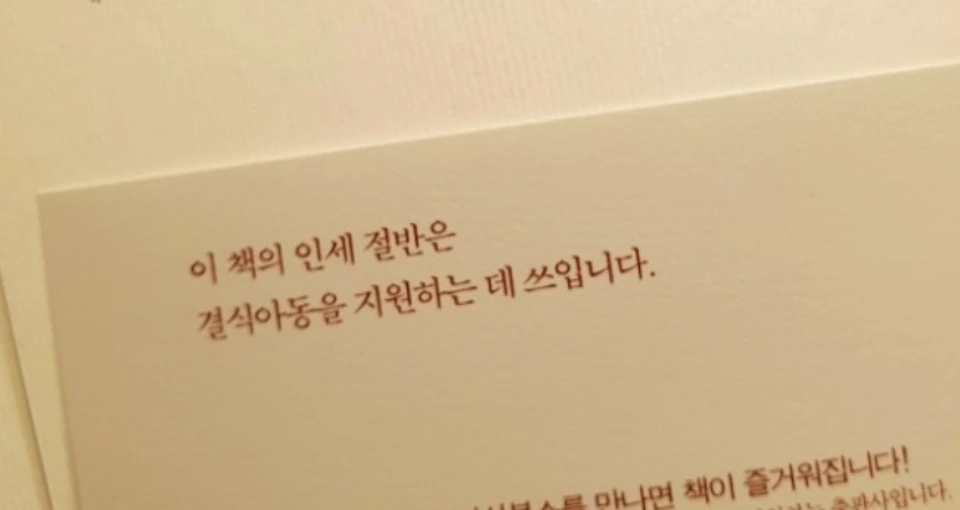 이 책의 인세 절반은
결식아동을 지원하는 데 쓰입니다.
만나면 책이 즐거워집니다!
출판사입니다.